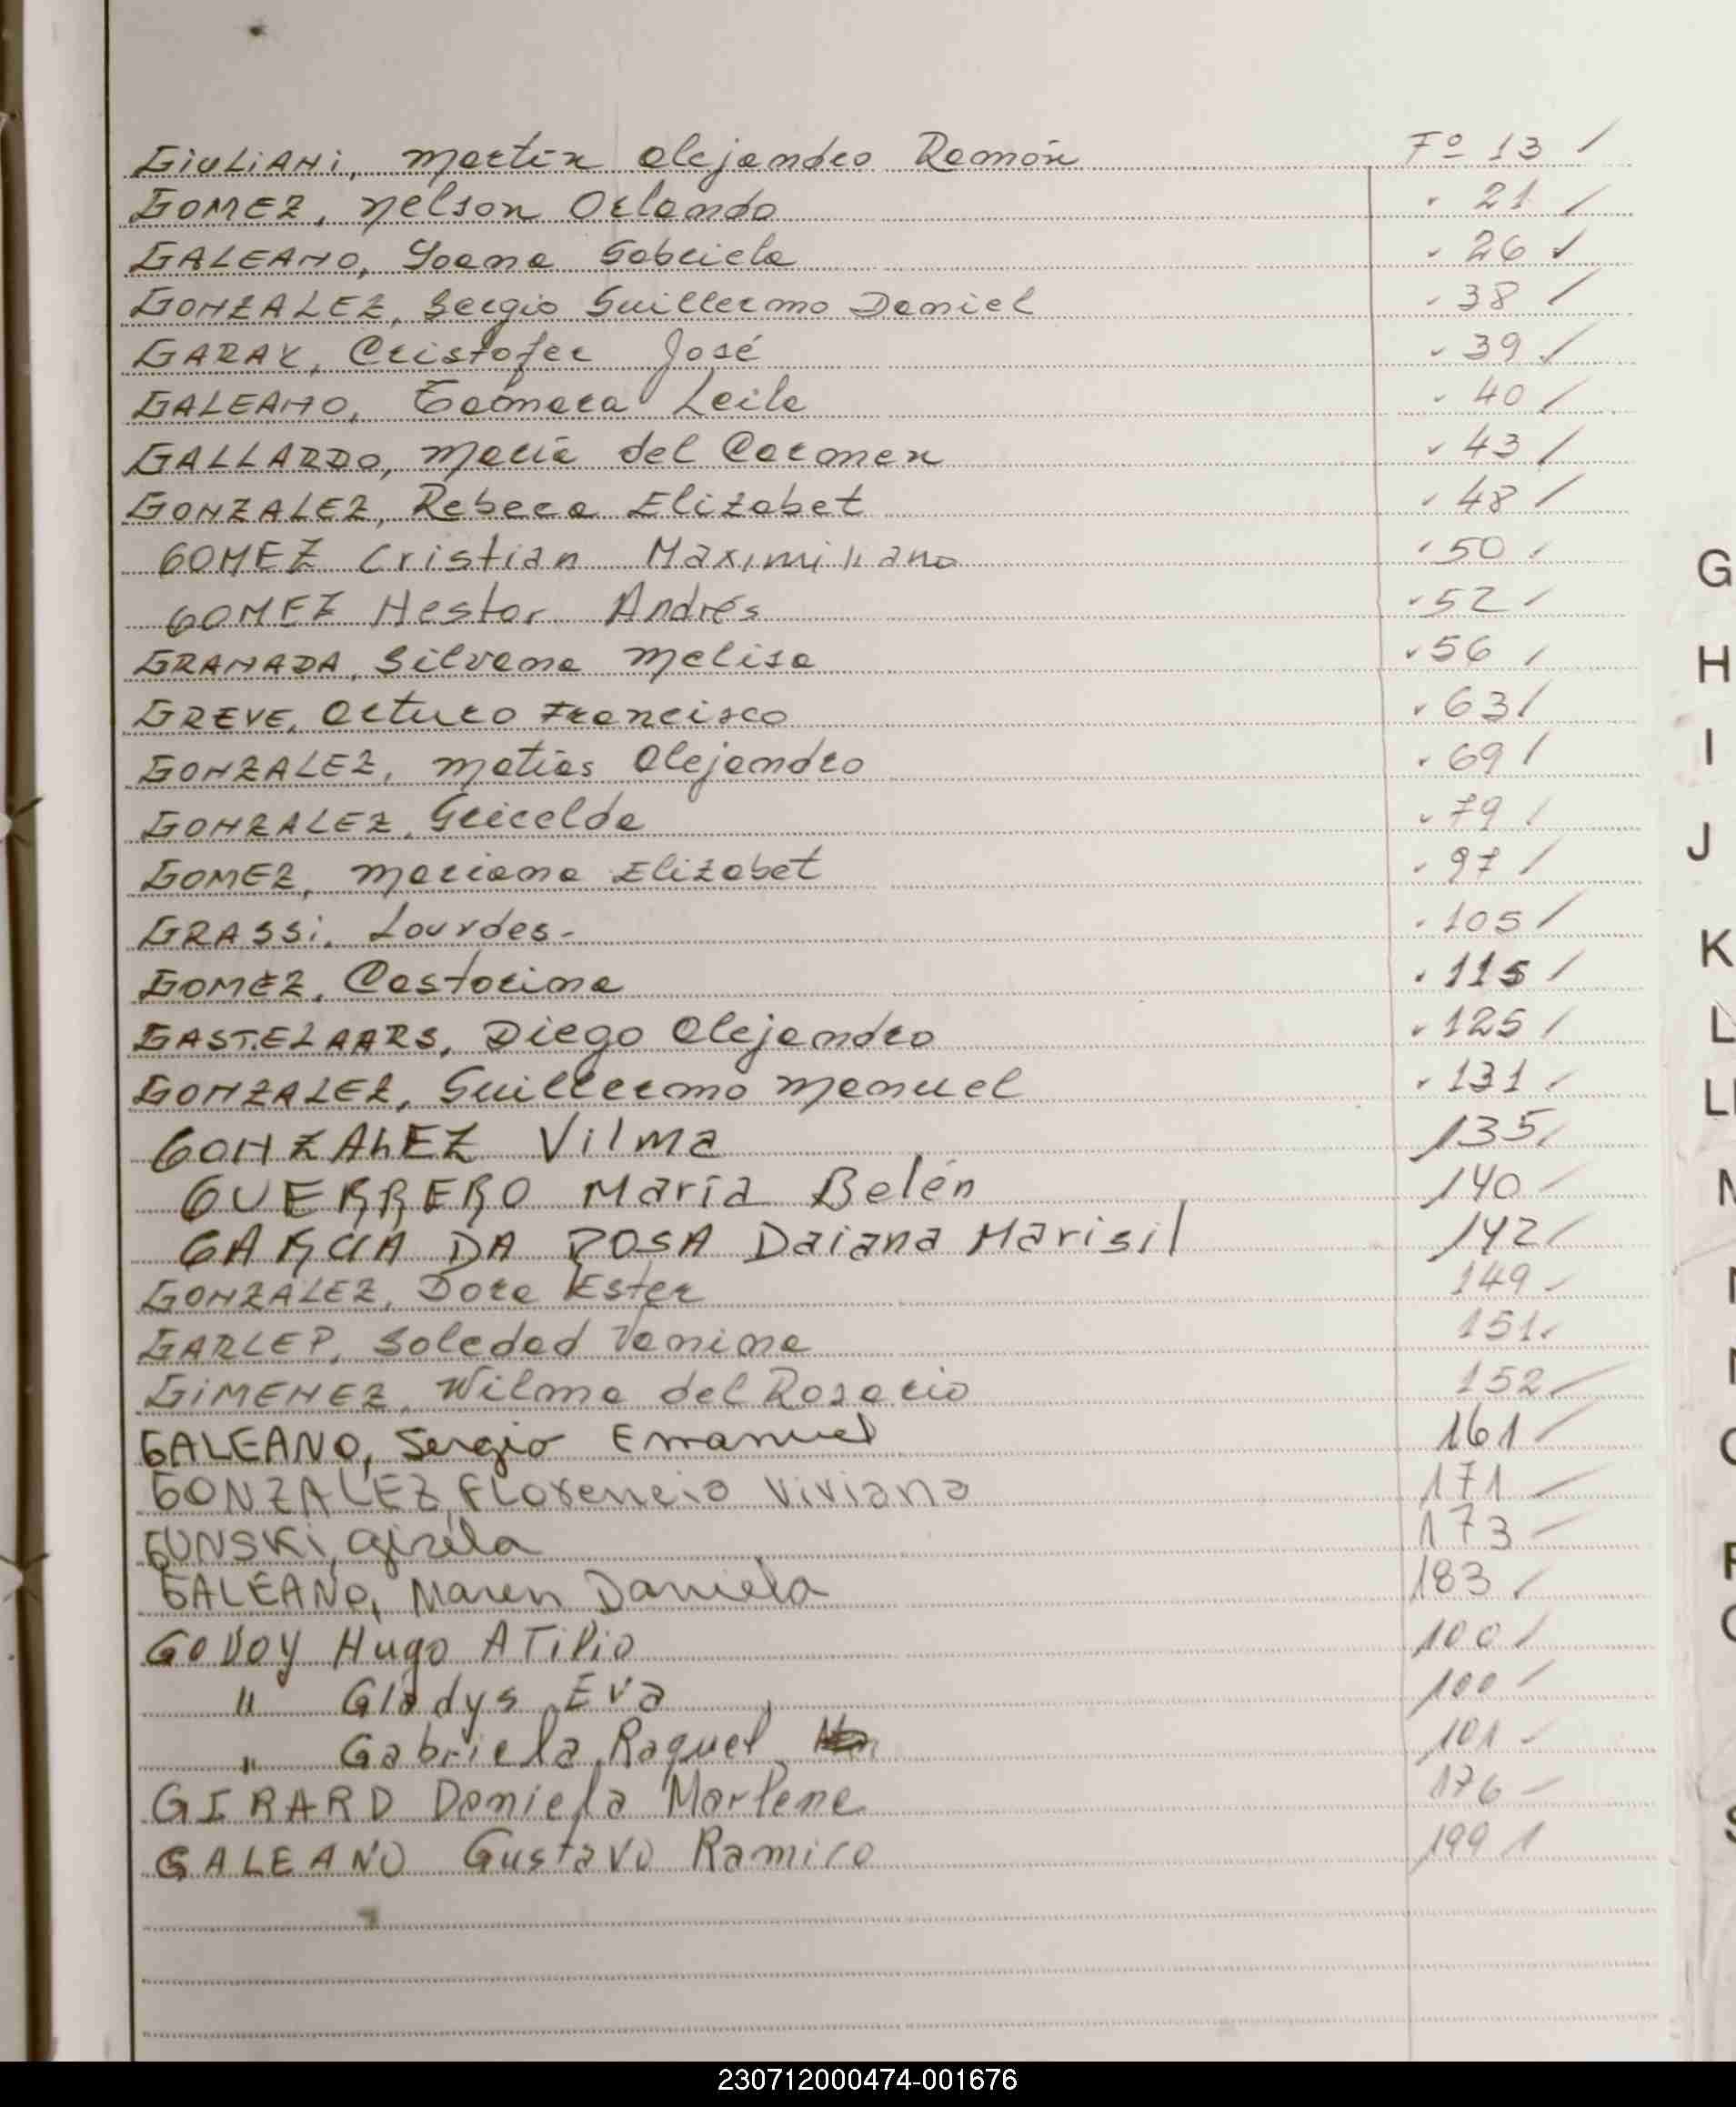 GIULIANI, Martín Alejandro Ramón Fº 13 /
GOMEZ, Nelson Orlando " 21 /
GALEANO, Yoana Gabriela " 26 /
GONZALEZ, Sergio Guillermo Daniel " 38 /
GARAY, Cristofer José " 39 /
GALEANO, Tamara Leila " 40 /
GALLARDO, María del Carmen " 43 /
GONZALEZ, Rebeca Elizabet " 48 /
GOMEZ Cristian Maximiliano " 50 /
GOMEZ Hestor Andrés " 52 /
GRANADA, Silvana Melisa " 56 /
GREVE, Arturo Francisco " 63 /
GONZALEZ, Matías Alejandro " 69 /
GONZALEZ, Gricelda " 79 /
GOMEZ, Mariana Elizabet " 97 /
GRASSI, Lourdes- " 105 /
GOMEZ, Castorina " 115 /
GASTELAARS, Diego Alejandro " 125 /
GONZALEZ, Guillermo Manuel " 131 /
GONZALEZ Vilma 135 /
GUERRERO María Belén 140 /
GARCIA DA ROSA Daiana Marisil 142 /
GONZALEZ, Dora Ester 149 /
GARLEP, Soledad Vanina 151 /
GIMENEZ, Wilma del Rosario 152 /
GALEANO, Sergio Emanuel 161 /
GONZALEZ, Florencia Viviana 171 /
GUNSKI, Gisela 173 /
GALEANO, Maren Daniela 183 /
GODOY Hugo Atilio 100 /
" Gladys Eva 100 /
" Gabriela Raquel 101 /
GIRARD Daniela Marlene 176 /
GALEANO Gustavo Ramiro 199 /
G
H
I
J
K
L
LL
230712000474-001676